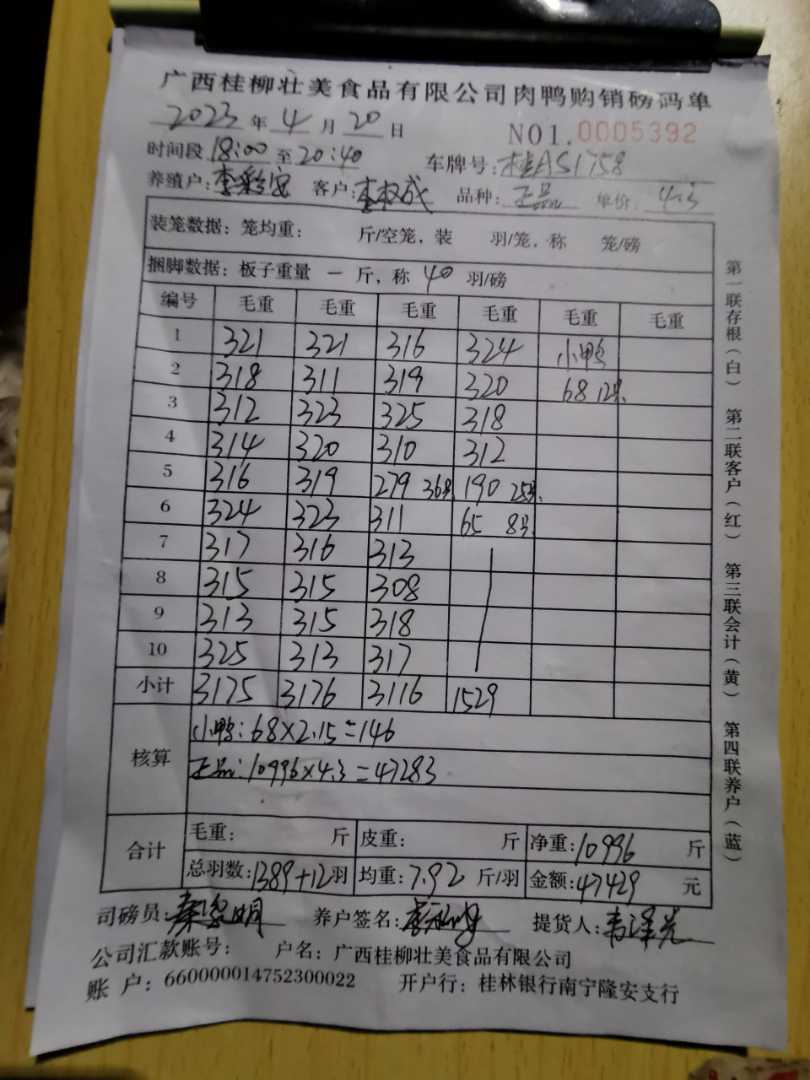 广西桂柳壮美食品有限公司肉鸭购销磅码单
2023 年 4 月 20 日 NO1.0005392
时间段 18:00 至 20:40 车牌号: 桂AS1758
养殖户: 李彩安 客户: 李权成 品种: 正品 单价: 4.3
装笼数据: 笼均重: 斤/空笼, 装 羽/笼, 称 笼/磅
捆脚数据: 板子重量 一 斤, 称 40 羽/磅
编号 毛重 毛重 毛重 毛重 毛重 毛重
1 321 321 316 324 小鸭
2 318 311 319 320 68 12只
3 312 323 325 318
4 314 320 310 312
5 316 319 279 36只 190 25只
6 324 323 311 65 8只
7 317 316 313
8 315 315 308
9 313 315 318
10 325 313 317
小计 3175 3176 3116 1529
核算 小鸭: 68×2.15=146
正品: 10996×4.3=47283
合计 毛重: 斤 皮重: 斤 净重: 10996 斤
总羽数: 1389+12羽 均重: 7.92 斤/羽 金额: 47429 元
司磅员: 养户签名: 提货人:
公司汇款账号: 户名: 广西桂柳壮美食品有限公司
账 户: 660000014752300022 开户行: 桂林银行南宁隆安支行
第一联存根(白) 第二联客户(红) 第三联会计(黄) 第四联养户(蓝)